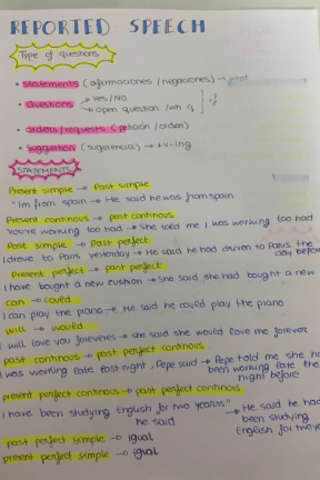 REPORTED SPEECH
Type of questions
• Statements (afirmaciones / negaciones) →
• Questions → Yes/NO
→ open question / wh q } if
• orders/requests (petición / orden)
• suggestion (sugerencia) → + v-ing
STATEMENTS
Present simple → Past simple
"Im from spain → He said he was from spain
Present continous → past continous
You're working too had → She told me I was working too had
Past simple → Past perfect
I drove to Paris yesterday → He said he had driven to Paris the
day before
Present perfect → past perfect
I have bought a new cushion → She said she had bought a new
can → could
I can play the piano → He said he could play the piano
will → would
I will love you foreveres → she said she would love me forever
past continous → past perfect continous
I was working late last night, Pepe said → Pepe told me she had
been working late the
night before
present perfect continous → past perfect continous
I have been studying English for two years" → He said he had
he said been studying
English for two
past perfect simple → igual
present perfect simple → igual